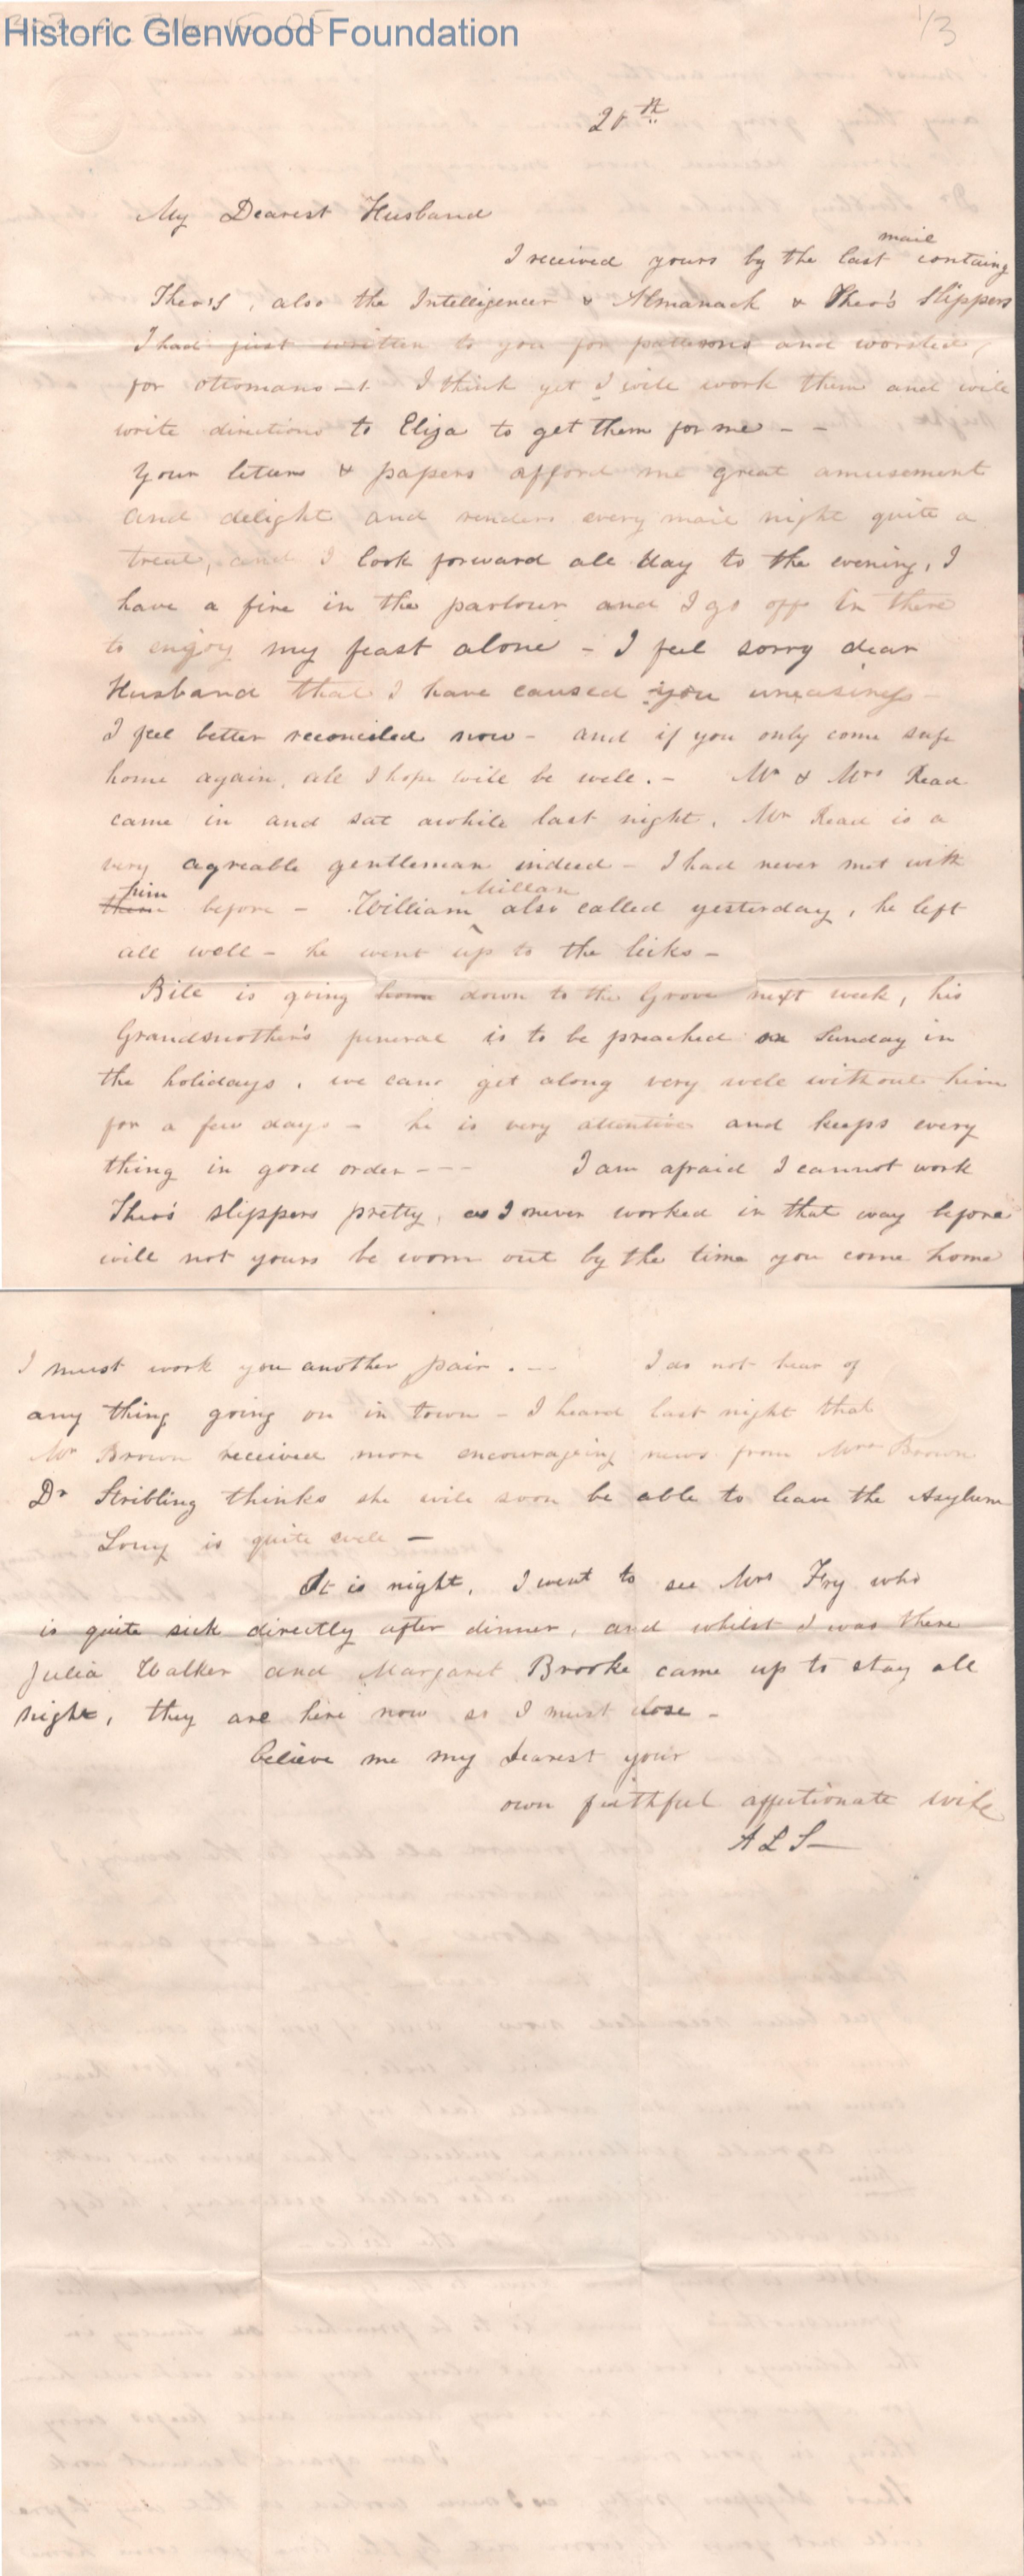 Historic Glenwood Foundation
1/3
20th
My Dearest Husband
I received yours by the last mail containg
Theo's, also the Intelligencer & Almanack & Theo's Slippers
I had just written to you for patterns and worsted,
for ottomans I think yet I will work them and will
write directions to Eliza to get them for me - -
Your letters & papers afford me great amusement
and delight and renders every mail night quite a
treat, and I look forward all day to the evening, I
have a fire in the parlour and I go off in there
to enjoy my feast alone - I feel sorry dear
Husband that I have caused you uneasiness -
I feel better reconciled now - and if you only come safe
home again, all I hope will be well. - Mr & Mrs Read
came in and sat awhile last night. Mr Read is a
very agreable gentleman indeed - I had never met with
them him before - William Millan also called yesterday, he left
all well - he went up to the licks -
Bill is going home down to the Grove next week, his
Grandmother's funeral is to be preached on Sunday in
the holidays, we can get along very well without him
for a few days - he is very attentive and keeps every
thing in good order - - - I am afraid I cannot work
Theo's slippers pretty, as I never worked in that way before
will not yours be worn out by the time you come home
I must work you another pair. - - I do not hear of
any thing going on in town - I heard last night that
Mr Brown received more encourageing news from Mrs Brown
Dr Stribling thinks she will soon be able to leave the Asylum
is quite well -
It is night, I went to see Mrs Fry who
is quite sick directly after dinner, and whilst I was there
Julia Walker and Margaret Brooke came up to stay all
night, they are here now so I must close -
believe me my dearest your
own faithful affectionate wife
A L S -